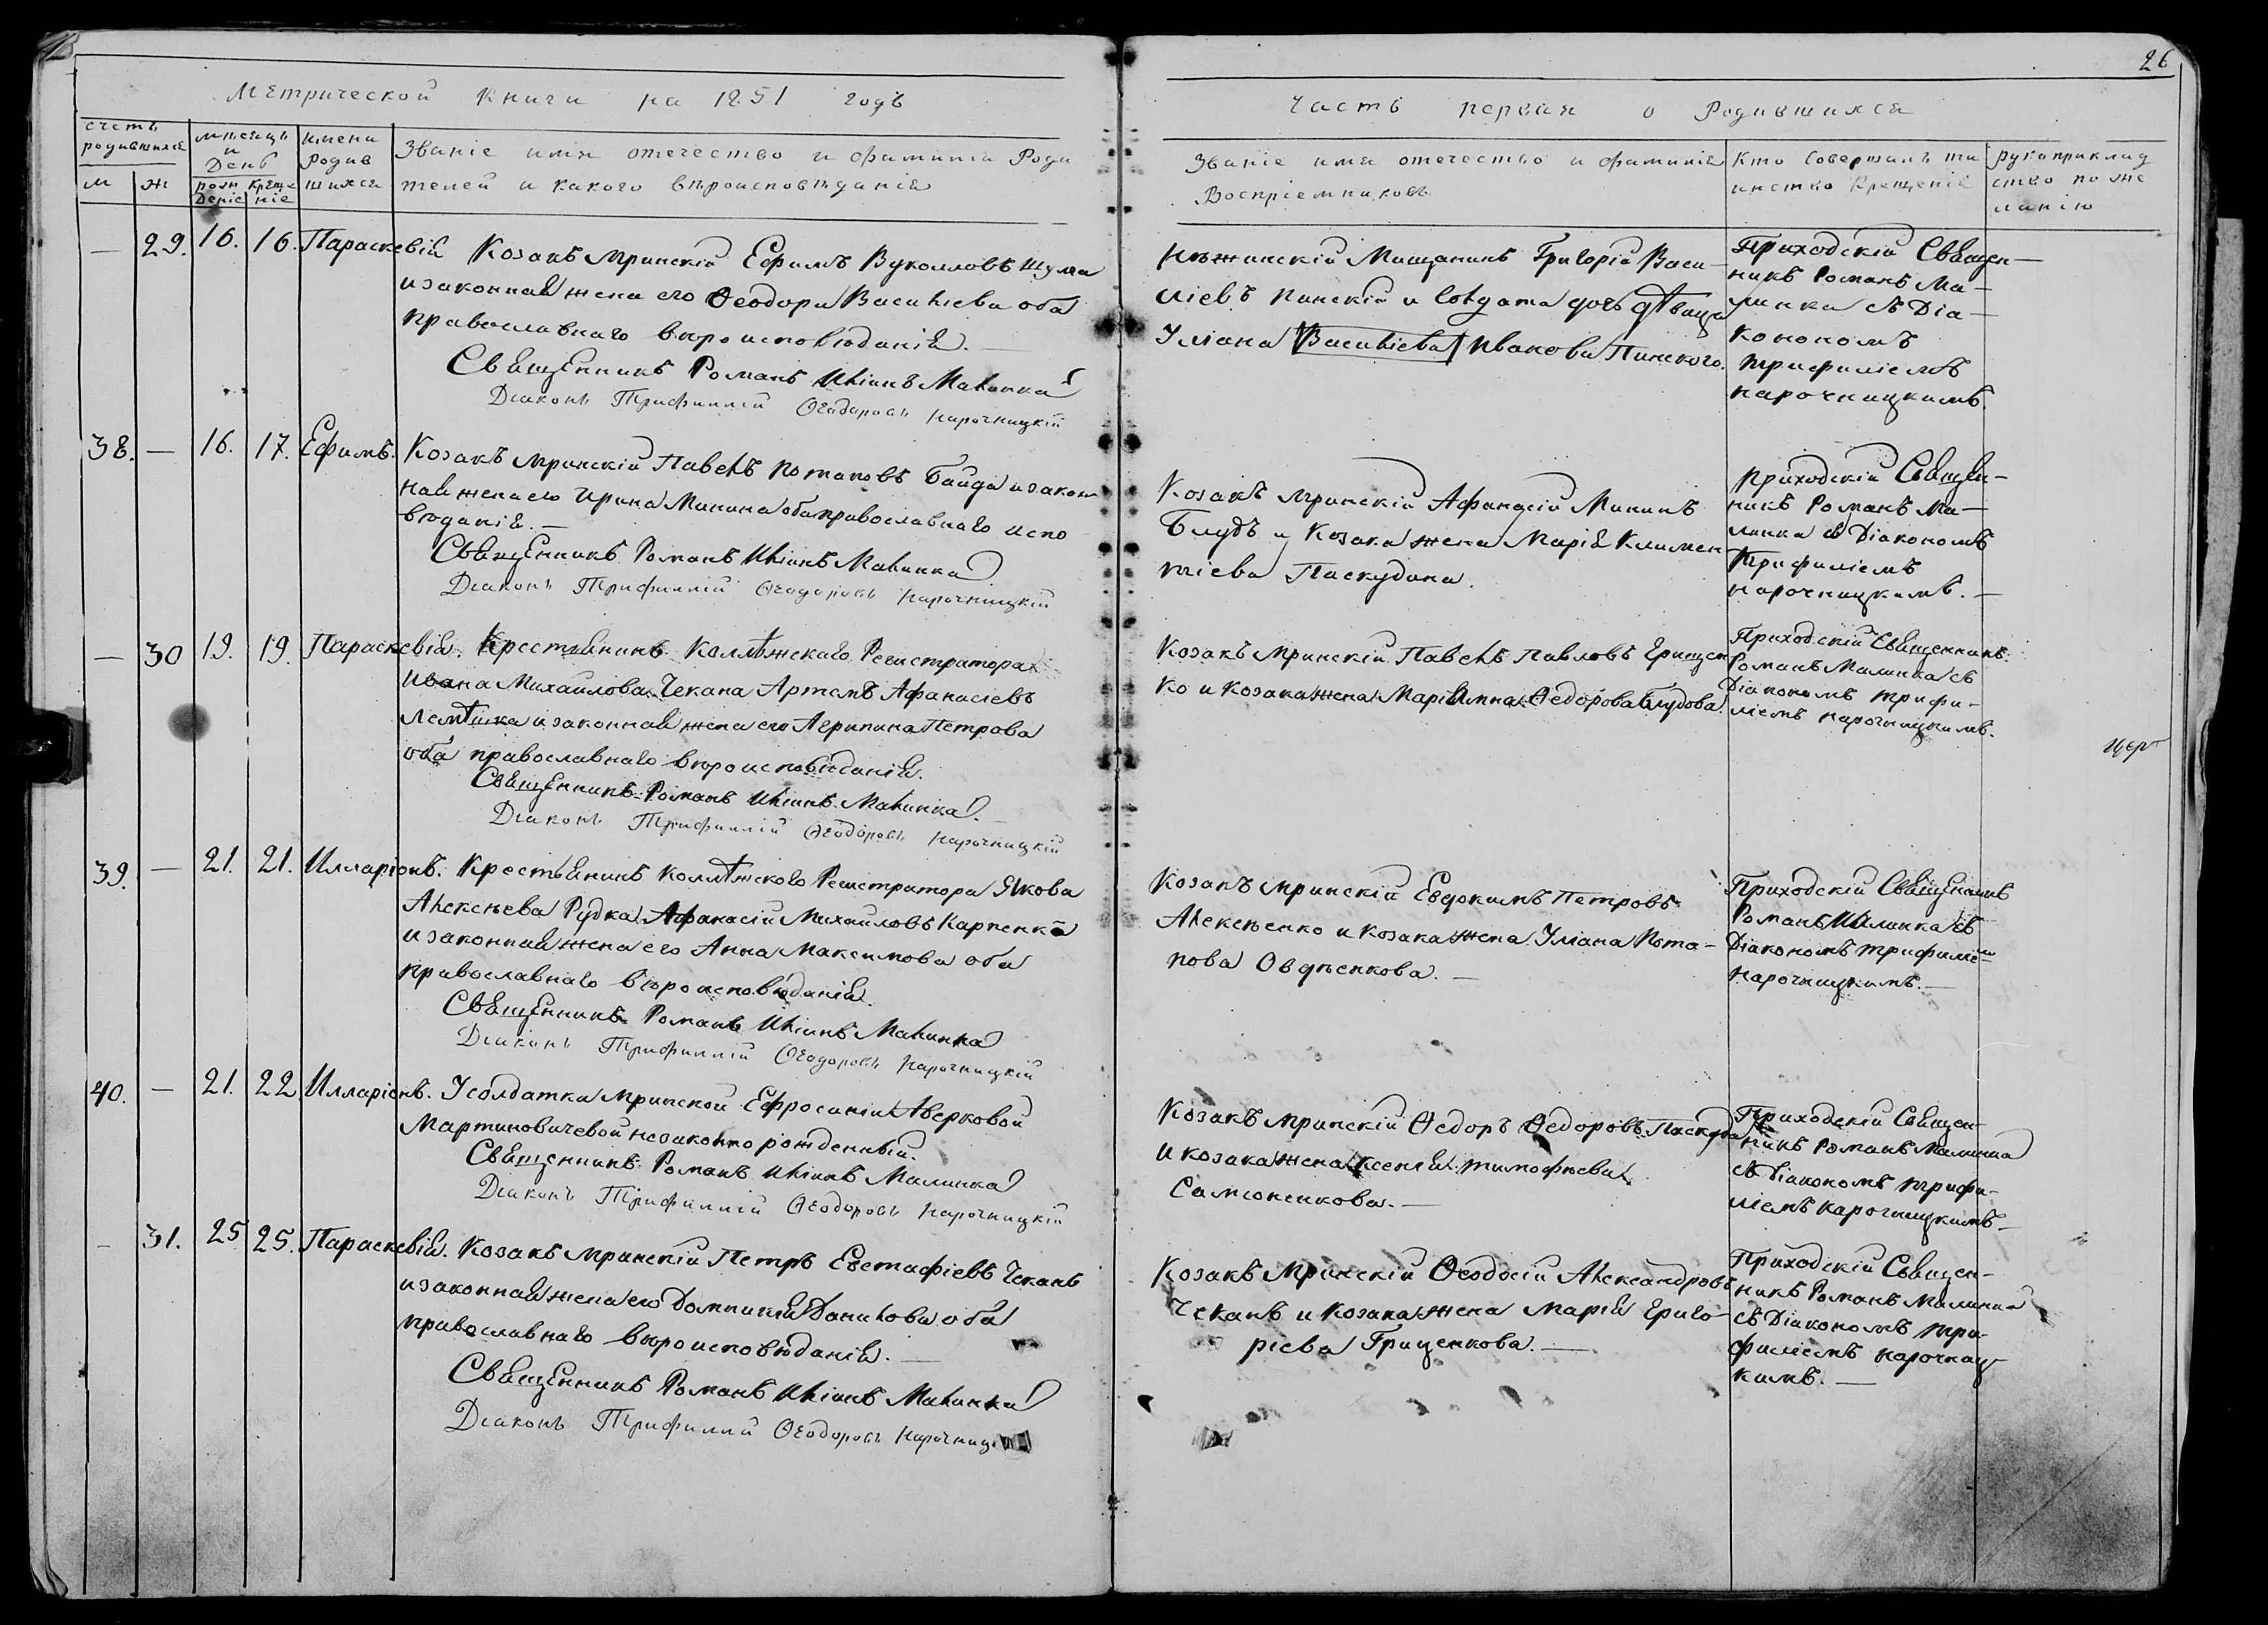 26
Метрической Книги на 1851 годъ
Часть первая о Родившихся
счетъ родившихся
м ж
мѣсяцъ и День
рожденіе крещеніе
имена Родившихся
Званіе имя отечество и фамилія Роди
телей и какого вѣроисповѣданія
Званіе имя отечество и фамилія
Воспріемниковъ
Кто Совершалъ та
инство Крещенія
рукоприклад
ство по же
ланію
— 29. 16. 16. Параскевія
Козакъ Мринскій Ефимъ Вуколловъ Шума
и законная жена его Ѳеодора Васильева оба
православнаго вѣроисповѣданія. —
Священникъ Романъ Иліинъ Малинка
Діаконъ Трифиллій Ѳеодоровъ Нарочницкій
Нѣжинскій Мищанинъ Григорій Васи-
ліевъ Пинскій и солдата дочь дѣвица
Уліана Васильева Иванова Пинского.
Приходскій Священ-
никъ Романъ Ма-
линка съ Діа-
кономъ
Трифиліемъ
Нарочницкимъ.
38. — 16. 17. Ефимъ.
Козакъ Мринскій Павелъ Потаповъ Байда и закон
ная жена его Ирина Минина оба православнаго испо
вѣданія. —
Священникъ Романъ Иліинъ Малинка
Діаконъ Трифиллій Ѳеодоровъ Нарочницкій
Козакъ Мринскій Афанасій Мининъ
Блудъ и Козака жена Марія Климен
тіева Паскудина.
Приходскій Священ-
никъ Романъ Ма-
линка съ Діакономъ
Трифиліемъ
Нарочницкимъ. —
— 30 19. 19. Параскевія.
Крестьянинъ Коллѣжскаго Регистратора
Ивана Михайлова Чекана Артемъ Афанасіевъ
и законная жена его Агрипина Петрова
оба православнаго вѣроисповѣданія.
Священникъ Романъ Иліинъ Малинка. —
Діаконъ Трифиллій Ѳеодоровъ Нарочницкій
Козакъ Мринскій Павелъ Павловъ Грищен
ко и козака жена Маріамна Ѳедорова Блудова.
Приходскій Священникъ
Романъ Малинка съ
Діакономъ Трифи-
ліемъ Нарочницкимъ.
39. — 21. 21. Илларіонъ.
Крестьянинъ Коллѣжского Регистратора Якова
Алексѣева Рудка Афанасій Михайловъ Карпенко
и законная жена его Анна Максимова оба
православнаго вѣроисповѣданія.
Священникъ Романъ Иліинъ Малинка
Діаконъ Трифиллій Ѳеодоровъ Нарочницкій
Козакъ Мринскій Евдокимъ Петровъ
Алексѣенко и козака жена Уліана Пота-
пова Овдѣенкова. —
Приходскій Священникъ
Романъ Малинка съ
Діакономъ Трифиліем
Нарочницкимъ. —
40. — 21. 22. Илларіонъ.
У солдатки Мринской Ефросиніи Аверковой
Мартиновичевой незаконно рожденный.
Священникъ Романъ Иліинъ Малинка
Діаконъ Трифиллій Ѳеодоровъ Нарочницкій
Козакъ Мринскій Ѳедоръ Ѳедоровъ Паскуда
и козака жена Ксенія Тимофѣева
Самсоненкова. —
Приходскій Священ-
никъ Романъ Малинка
съ Діакономъ Трифи-
ліемъ Нарочницкимъ —
— 31. 25 25. Параскевія.
Козакъ Мринскій Петръ Евстафіевъ Чеканъ
и законная жена его Домникія Данилова оба
православнаго вѣроисповѣданія. —
Священникъ Романъ Иліинъ Малинка
Діаконъ Трифиллій Ѳеодоровъ Нарочниц
Козакъ Мринскій Ѳеодосій Александровъ
Чеканъ и козака жена Марія Григо-
ріева Гриценкова. —
Приходскій Священ-
никъ Романъ Малинка
съ Діакономъ Три-
филіемъ Нарочниц
кимъ. —